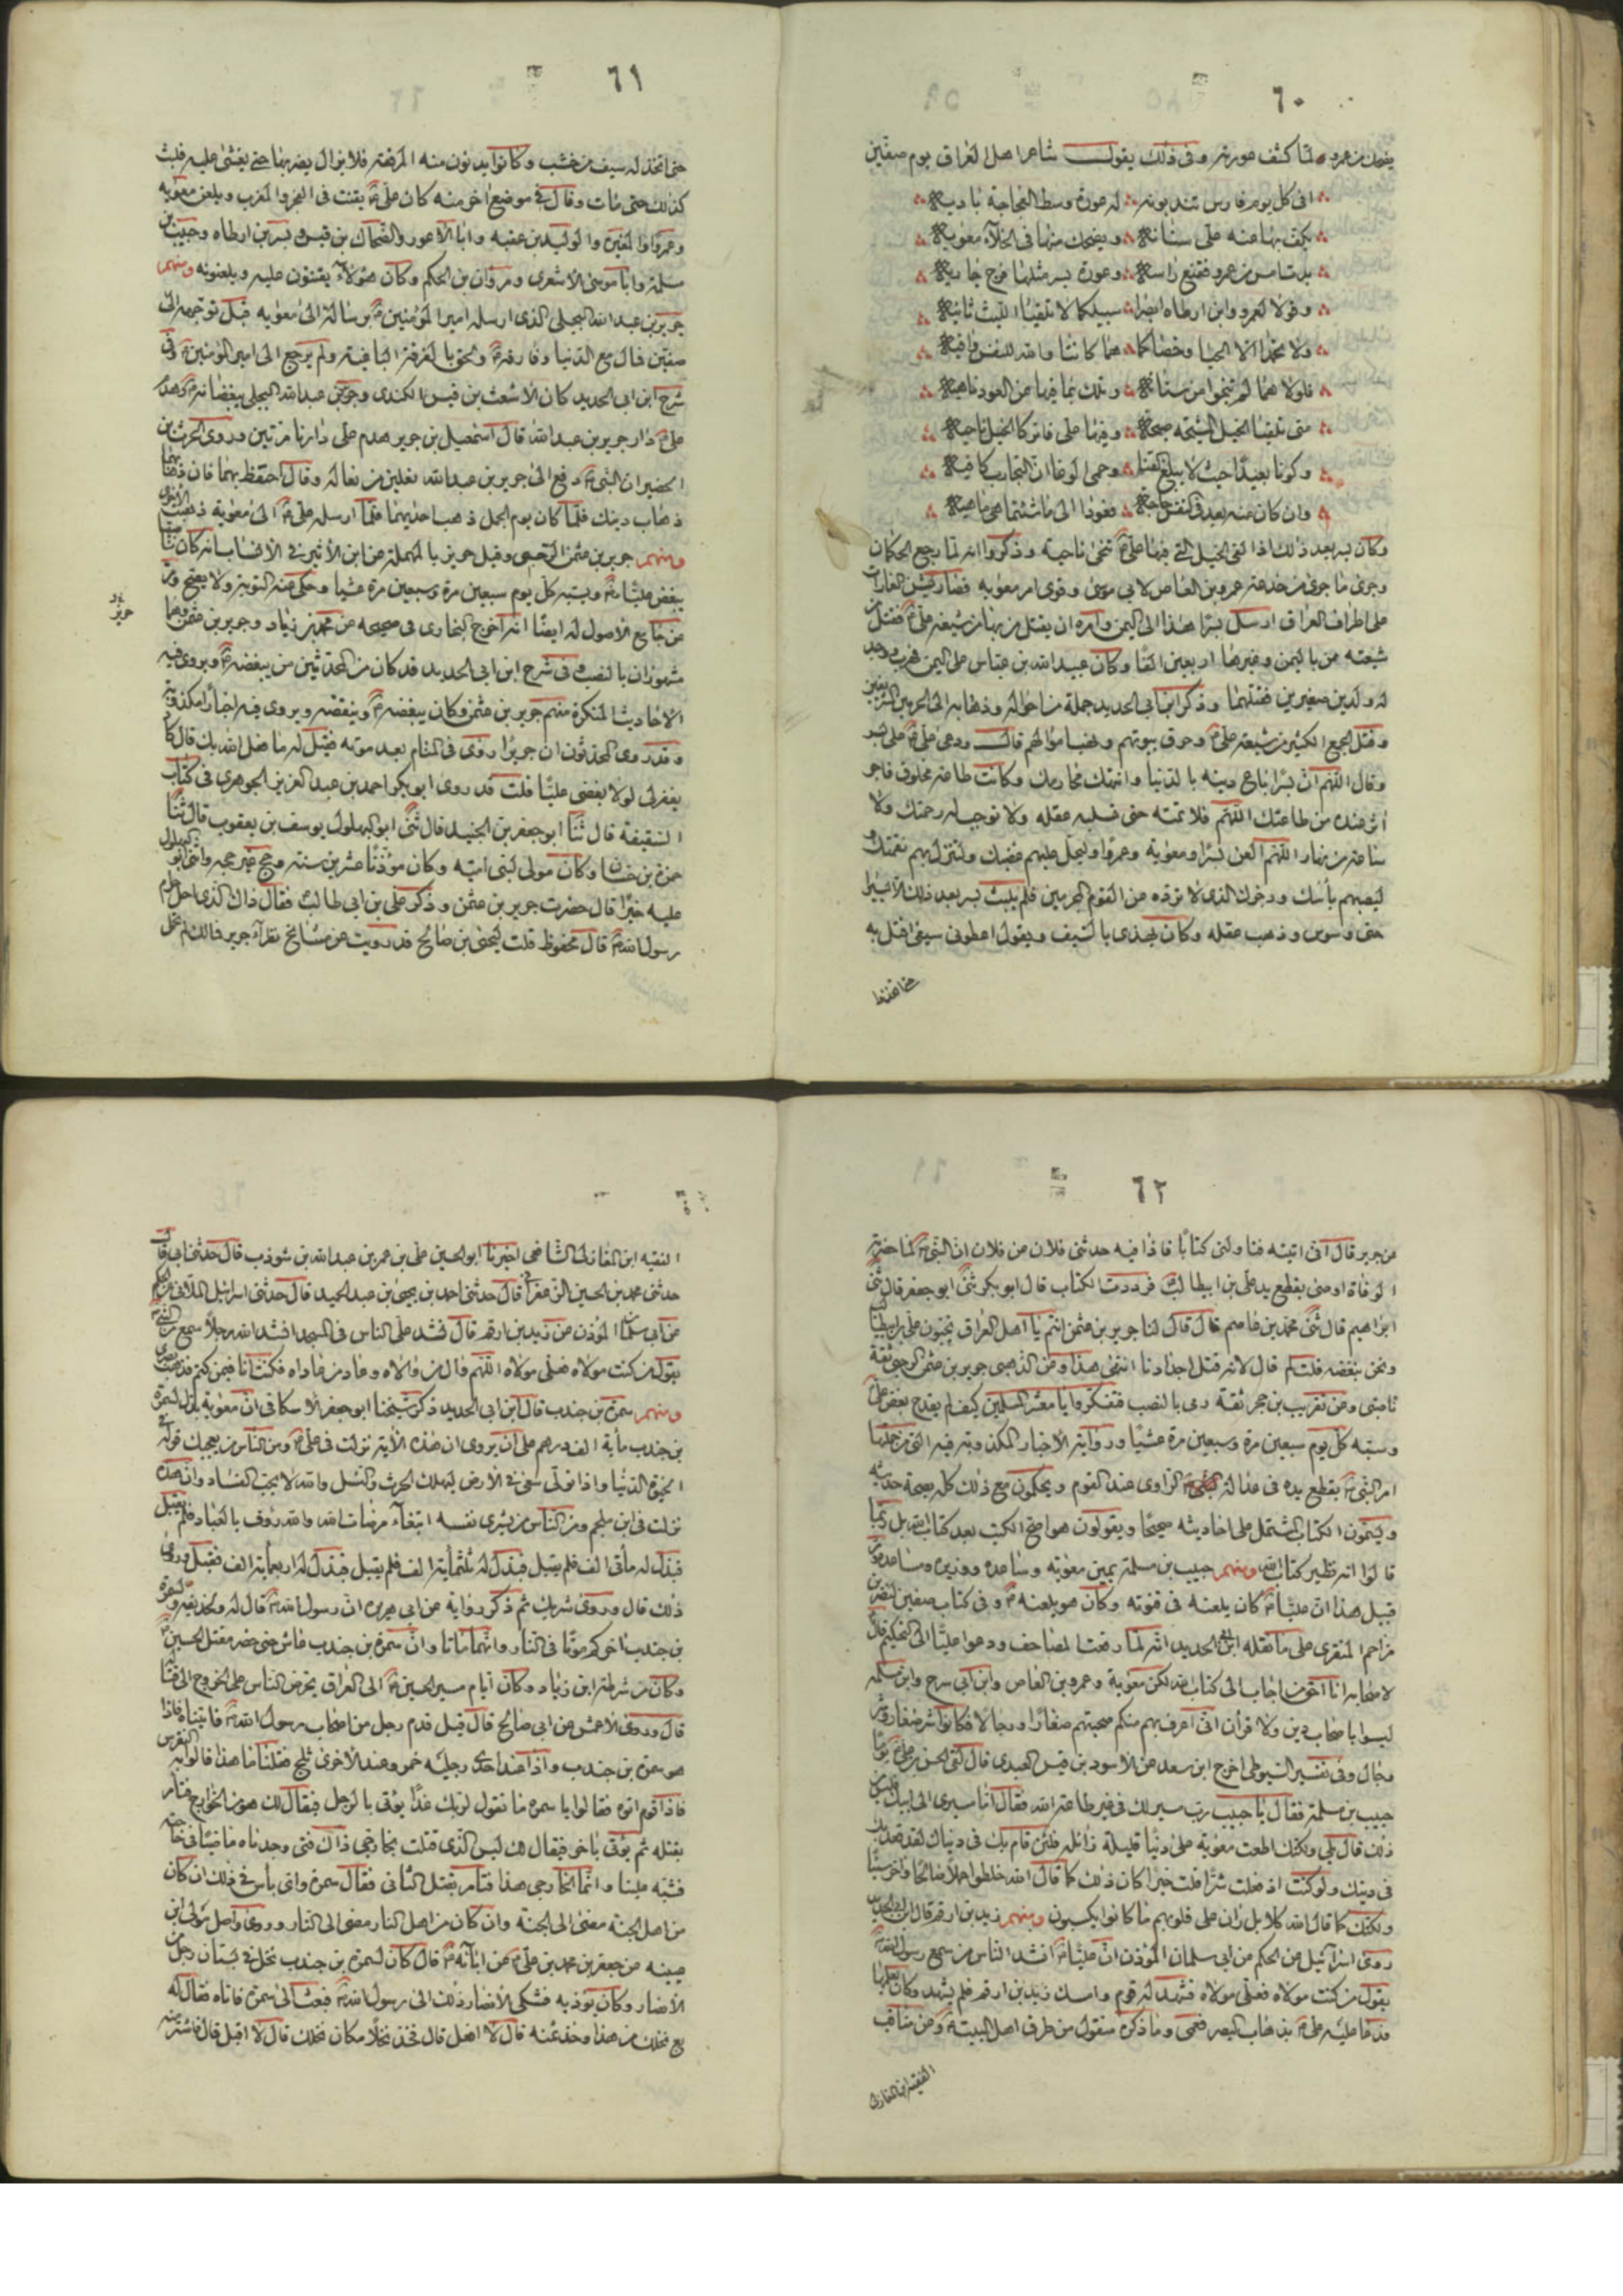 ٦٠
يضحك من عمرو لما كشف عورته وفى ذلك يقول شاعر اهل العراق يوم صفين
افى كل يوم فارس تندبونه له عورة وسط العجاجة باديه
يكف بها عنه على سنانه ويضحك منها فى الخلآء معويه
بدت امس من عمرو فقنع راسه وعورة بسر مثلها
وقولا لعمرو وابن ارطاه ابصرا سبيلكما لا تلقيا الليث ثانيه
ولا تحمدا الا الحيا وخصاكما هما كانتا والله للنفس واقيه
فلولا هما لم تنجوا من سنانه وتلك بما فيها عن العود ناهيه
متى تلقيا الخيل المشيحة صبحة وفيها على فاتركا الخيل ناحيه
وكونا بعيدًا حيث لا يبلغ القنا وحمى الوغا ان التجارب كافيه
وان كان منه بعد فى النفس حاجة فعودا الى ما شئتما هى ماهيه
وكان بسر بعد ذلك اذا لقى الخيل التى فيها على تنحى ناحية وذكروا انه لما رجع الحكمان
وجرى ما جرى من خدعة عمرو بن العاص لابى موسى وقوى امر معويه فصار يشن الغارات
على اطراف العراق ارسل بسرًا هذا الى اليمن وآمره ان يقتل من بها من شيعة على فقتل من
شيعته من باليمن وغيرها اربعين الفًا وكان عبيد الله بن عباس على اليمن فهرب ووجد
له ولدين صغيرين فقتلهما وذكر ابن ابى الحديد جملة من احواله وذهابه الى الحرمين الشريفين
وقتل الجمع الكثير من شيعة على وحرق بيوتهم ونهب اموالهم قال ودعى على على بسر
وقال اللهم ان بسرًا باع دينه بالدنيا وانتهك محارمك وكانت طاعة مخلوق فاجر
آثر عنده من طاعتك اللهم فلا تمته حتى تسلبه عقله ولا توجب له رحمتك ولا
ساعة من نهار اللهم العن بسرًا ومعوية وعمروًا وليحل عليهم غضبك ولتنزل بهم نقمتك
ليصبهم بأسك ورجزك الذى لا ترده عن القوم المجرمين فلم يلبث بسر بعد ذلك الا يسيرا
حتى وسوس وذهب عقله وكان يهذى بالسيف ويقول اعطونى سيفى اقتل به
٦١
حتى اتخذ له سيف من خشب وكانوا يدنون منه المرفقة فلا يزال يضربها حتى يغشى عليه فلبث
كذلك حتى مات وقال فى موضع آخر منه كان على يقنت فى الفجر والمغرب ويلعن معويه
وعمروًا والمغيرة والوليد بن عقبه وابا الاعور والضحاك بن قيس وبسر بن ارطاه وحبيب بن
مسلمة وابا موسى الاشعرى ومروان بن الحكم وكان هؤلآء يقنتون عليه ويلعنونه ومنهم
جرير بن عبد الله البجلى الذى ارسله امير المؤمنين برسالة الى معويه قبل توجهه الى
صفين فمال مع الدنيا وفارقه ولحق بالفرقة الباغية ولم يرجع الى امير المؤمنين وفى
شرح ابن ابى الحديد كان الاشعث بن قيس الكندى وجرير بن عبد الله البجلى يبغضانه وهدم
على دار جرير بن عبد الله قال اسمعيل بن جرير هدم على دارنا مرتين وروى الحرث بن
الحضير ان النبى دفع الى جرير بن عبد الله نعلين من نعاله وقال احتفظ بهما فان ذهابهما
ذهاب دينك فلما كان يوم الجمل ذهبت احديهما فلما ارسله على الى معوية ذهبت الاخرى
ومنهم جرير بن عثمن الحمصى وقيل حريز بالمهملة عن ابن الأثير فى الانساب انه كان
يبغض عليًا ويسبه كل يوم سبعين مرة وسبعين مرة عشيا وحكى عنه التوبة ولا يصح
عن جامع الاصول له ايضًا انه اخرج البخارى فى صحيحه عن محمد بن زياد وجرير بن عثمن وهما
مشهوران بالنصب وفى شرح ابن ابى الحديد قد كان من المحدثين من يبغضه ويروى فيه
الاحاديث المنكرة منهم جرير بن عثمن وكان يبغضه وينقصه ويروى فيه اخبارًا مكذوبة
وقد روى المحدثون ان جريرًا روى فى المنام بعد موته فقيل له ما فعل الله بك قال كاد
يغفر لى لولا بغضى عليًا قلت قد روى ابو بكر احمد بن عبد العزيز الجوهرى فى كتاب
السقيفة قال ثنا ابو جعفر بن الجنيد قال ثنى ابو البهلول يوسف بن يعقوب قال ثنا
حمزة بن حسان وكان مولى لبنى اميه وكان مؤذنًا عشرين سنة وحج غير حجه واثنى ابو البهلول
عليه خيرًا قال حضرت جرير بن عثمن وذكر على بن ابى طالب فقال ذاك الذى احل حرم
رسول الله قال محفوظ قلت ليحيى بن صالح قد رويت عن مشايخ نظرآء جرير فما لك لم تحمل
٦٢
عن جرير قال انى اتيته فناولنى كتابًا فاذا فيه حدثنى فلان عن فلان ان النبى لما حضرته
الوفاة اوصى بقطع يد على بن ابيطالب فرددت الكتاب قال ابو بكر ثنى ابو جعفر قال ثنى
ابراهيم قال ثنى محمد بن عاصم قال قال لنا جرير بن عثمن انتم يا اهل العراق تحبون على بن ابيطالب
ونحن نبغضه قلت لم قال لانه قتل اجدادنا انتهى هذا وعن الذهبى جرير بن عثمن الرحبى ثقة
ناصبى وعن تقريب بن حجر ثقة رمى بالنصب فتفكروا يا معشر المسلمين كيف لم يقدح بغض على
وسبه كل يوم سبعين مرة وسبعين مرة عشيًا ورواية الاخبار المكذوبة فيه التى من جملتها
امر النبى بقطع يده فى عدالة الراوى عند القوم ويحكمون مع ذلك كله بصحة حديثه
ويسمون الكتاب المشتمل على احاديثه صحيحًا ويقولون هو اصح الكتب بعد كتاب الله بل ربما
قالوا انه نظير كتاب الله ومنهم حبيب بن مسلمة يمين معويه وساعده ووزيره ومساعده
قبيل هذا ان عليًا كان يلعنه فى قنوته وكان هو يلعنه وفى كتاب صفين لنصر بن
مزاحم المنقرى على ما نقله ابن ابى الحديد انه لما رفعت المصاحف ودعوا عليًا الى التحكيم قال
لاصحابه انا احق من اجاب الى كتاب الله لكن معوية وعمرو بن العاص وابن ابى سرح وابن مسلمه
ليسوا باصحاب دين ولا قرآن انى اعرف بهم منكم صحبتهم صغارًا ورجالا فكانوا شر صغار وشر
رجال وفى تفسير السيوطى اخرج ابن سعد عن الاسود بن قيس العبدى قال لقى الحسن بن على يومًا
حبيب بن مسلمة فقال يا حبيب رب مسير لك فى غير طاعة الله فقال اما مسيرى الى ابيك فليس من
ذلك قال بلى ولكنك اطعت معوية على دنيًا قليلة زائلة فلئن قام بك فى دنياك لقد قعد بك
فى دينك ولو كنت اذ فعلت شرًا قلت خيرًا كان ذلك كما قال الله خلطوا عملا صالحا وآخر سيئًا
ولكنك كما قال الله كلا بل ران على قلوبهم ما كانوا يكسبون ومنهم زيد بن ارقم قال ابن ابى الحديد
روى اسرآئيل عن الحكم عن ابى سلمان المؤذن ان عليًا انشد الناس من سمع رسول الله
يقول من كنت مولاه فعلى مولاه فشهد له قوم وامسك زيد بن ارقم فلم يشهد وكان يعلمها
فدعا عليه على بذهاب البصر فعمى وما ذكره منقول من طرق اهل البيت وعن مناقب
الفقيه ابن المغازلى
الفقيه ابن المغازلى الشافعى اخبرنا ابو الحسين على بن عمر بن عبد الله بن شوذب قال حدثنى ابى قال
حدثنى محمد بن الحسين الزعفرانى قال حدثنى احمد بن يحيى بن عبد الحميد قال حدثنى اسرائيل الملائى عن الحكم
عن ابى سلمان المؤذن عن زيد بن ارقم قال نشد على الناس فى المسجد انشد الله رجلًا سمع النبى
يقول من كنت مولاه فعلى مولاه اللهم وال من والاه وعاد من عاداه فكنت انا فيمن كتم فذهب بصرى
ومنهم سمرة بن جندب قال ابن ابى الحديد ذكر شيخنا ابو جعفر الاسكافى ان معوية بذل لسمرة
بن جندب مأية الف درهم على ان يروى ان هذه الآية نزلت فى على ومن الناس من يعجبك قوله فى
الحيوة الدنيا واذا تولى سعى فى الأرض ليهلك الحرث والنسل والله لا يحب الفساد وان هذه
نزلت فى ابن ملجم ومن الناس من يشرى نفسه ابتغآء مرضات الله والله رؤف بالعباد فلم يقبل
فبذل له مأتى الف فلم يقبل فبذل له ثلثمأية الف فلم يقبل فبذل له اربعمأية الف فقبل وروى
ذلك قال وروى شريك ثم ذكر رواية عن ابى هريره ان رسول الله قال له ولحذيفة ولسمرة
بن جندب آخركم موتًا فى النار وانهما ماتا وان سمرة بن جندب عاش حتى حضر مقتل الحسين
وكان من شرطة ابن زياد وكان ايام مسير الحسين الى العراق يحرض الناس على الخروج الى قتاله
قال وروى الاعمش عن ابى صالح قال قيل قدم رجل من اصحاب رسول الله فاتيناه فاذا
هو سمرة بن جندب واذا عند احدى رجليه خمر وعند الاخرى ثلج فقلنا ما هذا قالوا به النقرس
فاذا قوم اتوه فقالوا يا سمرة ما تقول لربك غدًا يؤتى بالرجل فيقال لك هو من الخوارج فتامر
بقتله ثم يؤتى بآخر فيقال لك ليس الذى قتلت بخارجى ذاك فتى وجدناه ماضيًا فى حاجته
فشبه علينا وانما الخارجى هذا فتامر بقتل الثانى فقال سمرة واى بأس فى ذلك ان كان
من اهل الجنة مضى الى الجنة وان كان من اهل النار مضى الى النار وروى واصل مولى ابن
عيينه عن جعفر بن محمد بن على عن آبآئه قال كان لسمرة بن جندب نخل فى بستان رجل من
الأنصار وكان يؤذيه فشكى الأنصار ذلك الى رسول الله فبعث الى سمرة فاتاه فقال له
بع نخلك من هذا وخذ ثمنه قال لا افعل قال فخذ نخلًا مكان نخلك قال لا افعل قال فاشتر منه